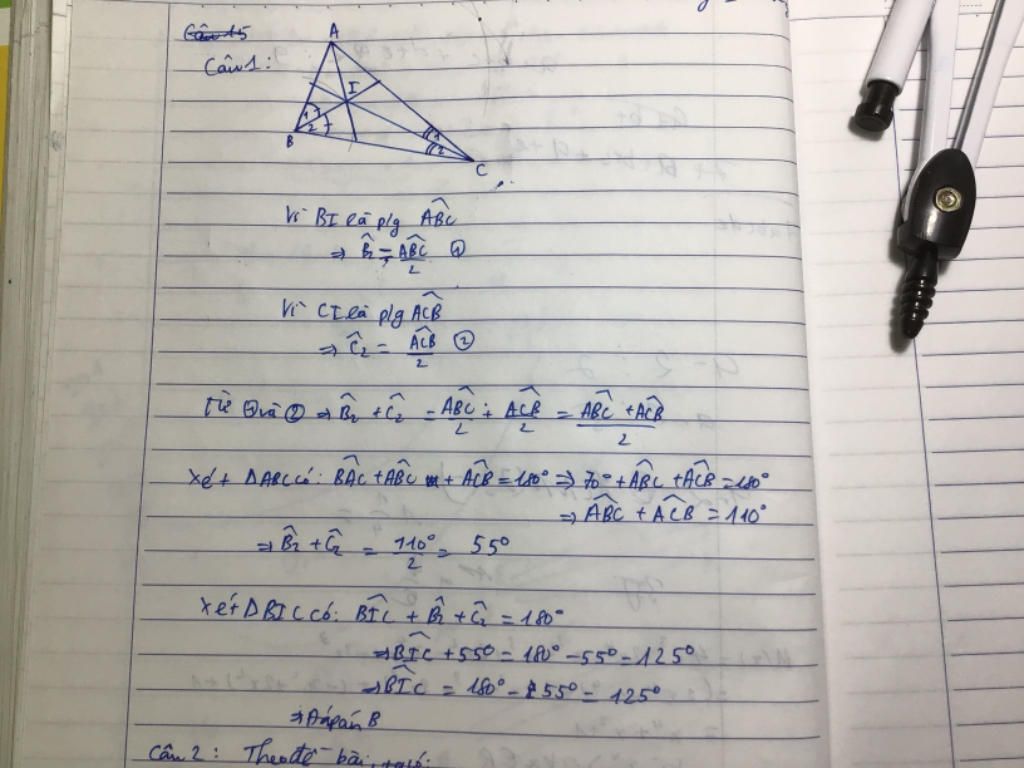 Câu 15
Câu 1:
A
I
1
2
B
1
2
C
Vì BI là p/g ABC^
⇒ B̂₂ = ABC^/2 ①
Vì CI là p/g ACB^
⇒ Ĉ₂ = ACB^/2 ②
Từ ① và ② ⇒ B̂₂ + Ĉ₂ = ABC^/2 + ACB^/2 = (ABC^ + ACB^)/2
Xét ΔABC có: BAC^ + ABC^ + ACB^ = 180° ⇒ 70° + ABC^ + ACB^ = 180°
⇒ ABC^ + ACB^ = 110°
⇒ B̂₂ + Ĉ₂ = 110°/2 = 55°
Xét ΔBIC có: BIC^ + B̂₂ + Ĉ₂ = 180°
⇒ BIC^ + 55° = 180° - 55° = 125°
⇒ BIC^ = 180° - 55° = 125°
⇒ Đáp án B
Câu 2: Theo đề bài, ta có: